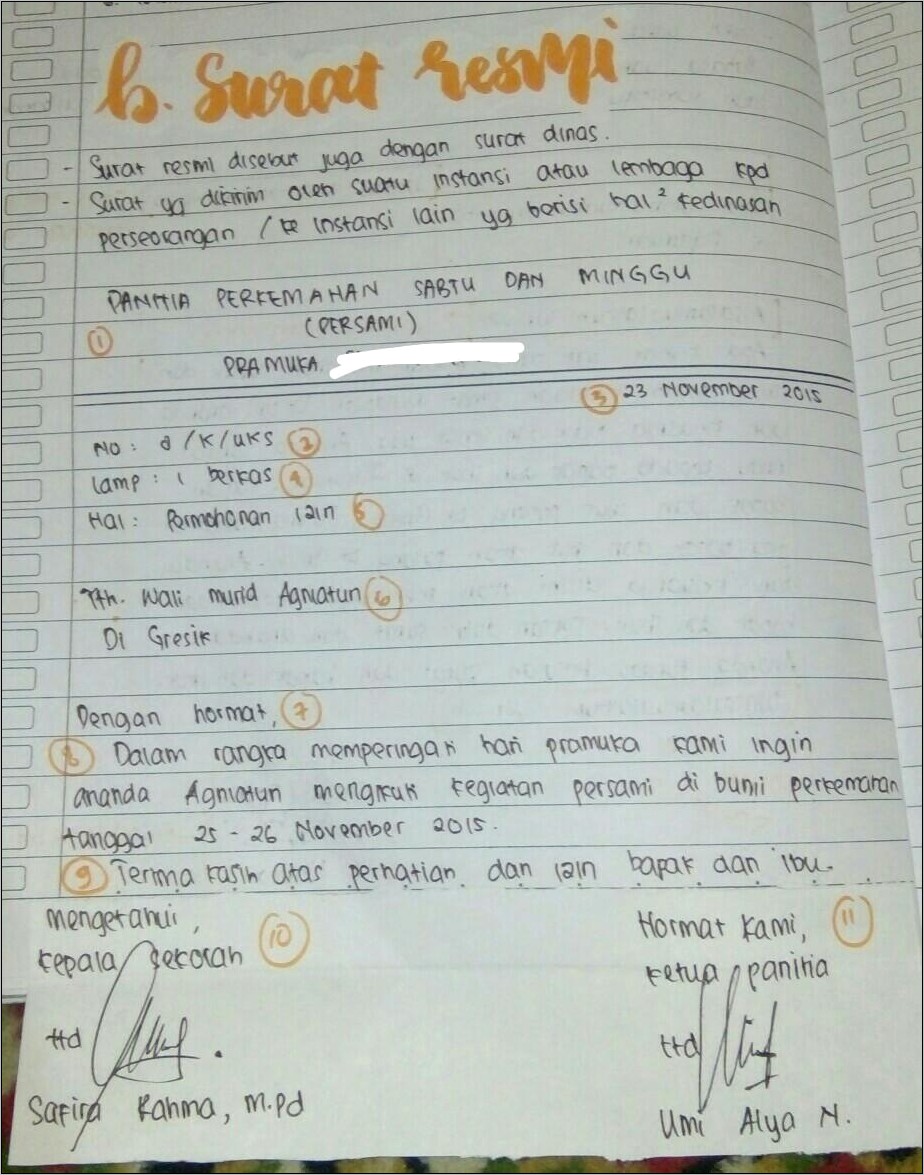 b. Surat resmi
- Surat resmi disebut juga dengan surat dinas.
- Surat yg dikirim oleh suatu instansi atau lembaga kpd
perseorangan / ke instansi lain yg berisi hal² kedinasan
PANITIA PERKEMAHAN SABTU DAN MINGGU
(PERSAMI)
①
PRAMUKA
③ 23 November 2015
No : 8/K/UKS ②
Lamp : 1 berkas ④
Hal : Permohonan izin ⑤
Yth. Wali murid Agniatun ⑥
Di Gresik
Dengan hormat, ⑦
⑧ Dalam rangka memperingati hari pramuka kami ingin
ananda Agniatun mengikuti kegiatan persami di bumi perkemahan
tanggal 25 - 26 November 2015.
⑨ Terima kasih atas perhatian dan izin bapak dan ibu.
mengetahui, ⑩
Kepala sekolah
ttd
Safira Rahma, M.Pd
Hormat Kami, ⑪
Ketua panitia
ttd
Umi Alya N.